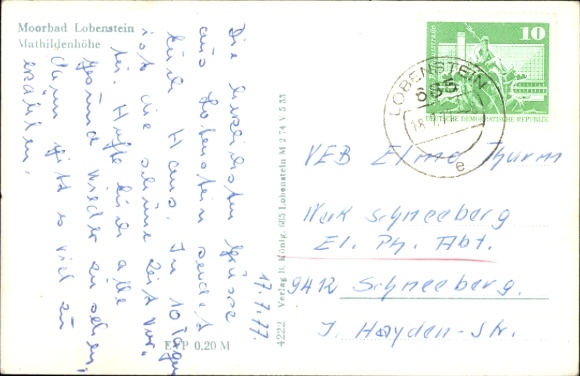 Moorbad Lobenstein
Mathildenhöhe
17.7.77
Die herzlichsten Grüsse
aus Lobenstein sendet
Euch Hans. In 10 Tagen
ist die schöne Zeit vor-
bei. Hoffe Euch alle
gesund wieder zu sehen,
dann gibt es viel zu
erzählen.
EVP 0,20 M
4222 Verlag H. König, 685 Lobenstein M 2 74 V 5 33
10
DEUTSCHE DEMOKRATISCHE REPUBLIK
LOBENSTEIN
685
18.7.77
e
VEB Elmo Thurm
Werk Schneeberg
El. Ph. Abt.
9412 Schneeberg.
J. Haydn-Str.